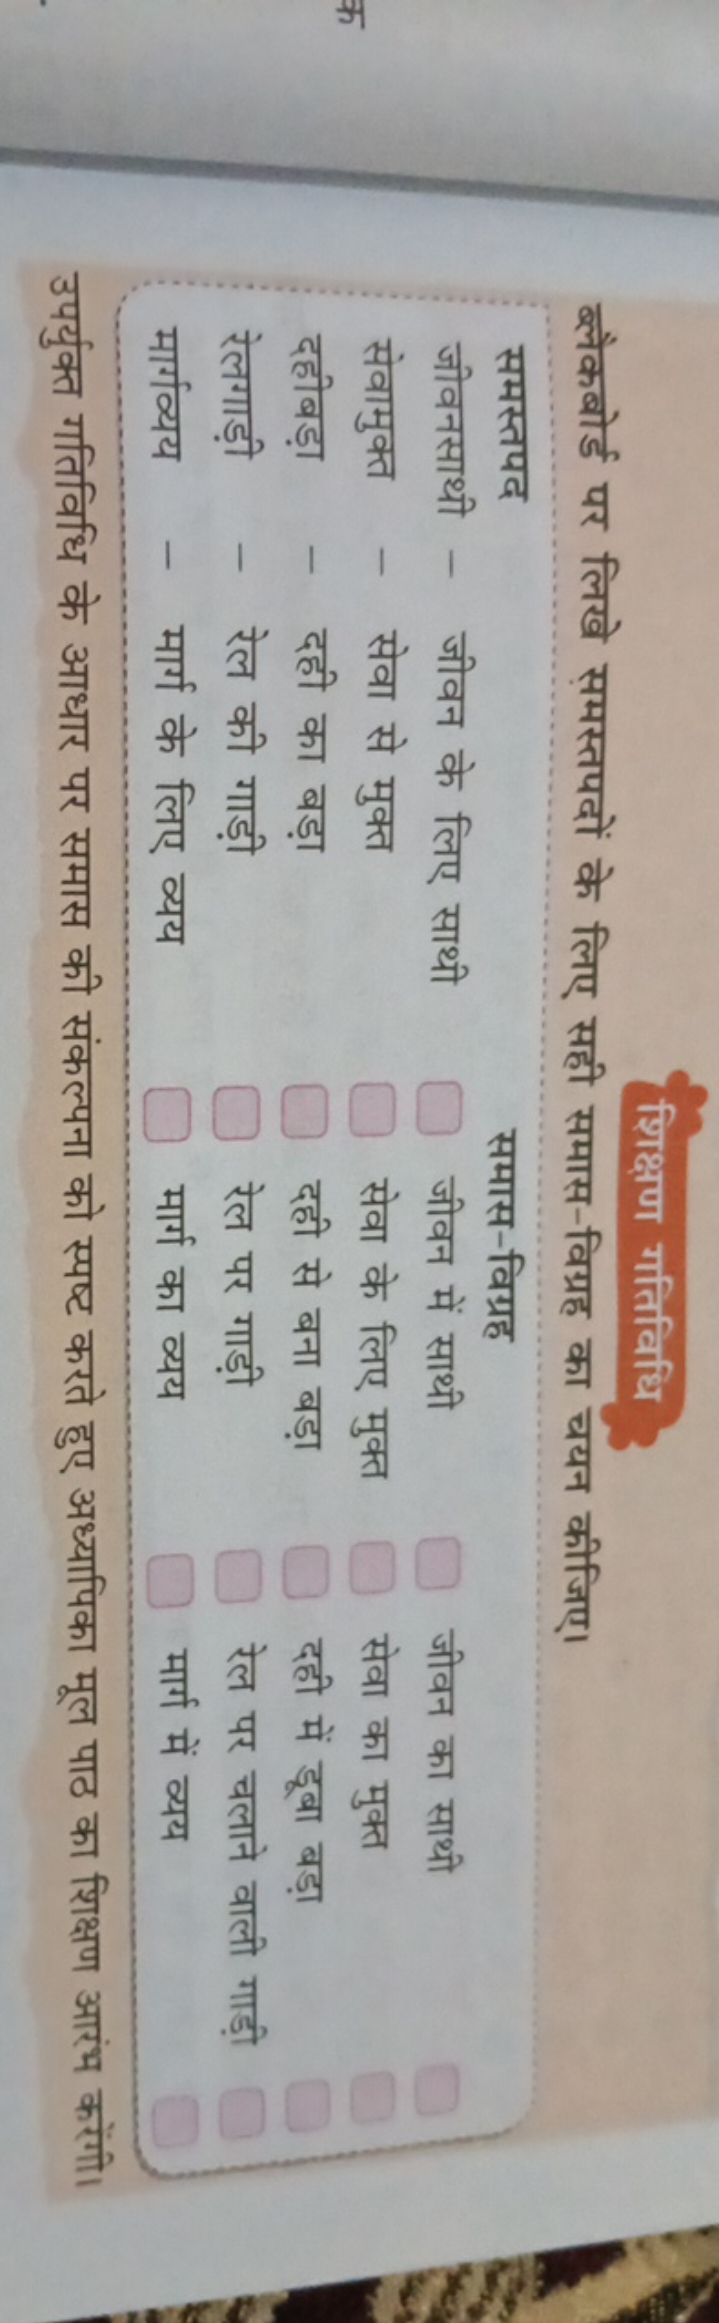 क
शिक्षण गतिविधि
ब्लैकबोर्ड पर लिखे समस्तपदों के लिए सही समास-विग्रह का चयन कीजिए।
समस्तपद समास-विग्रह
जीवनसाथी – जीवन के लिए साथी जीवन में साथी जीवन का साथी
सेवामुक्त – सेवा से मुक्त सेवा के लिए मुक्त सेवा का मुक्त
दहीबड़ा – दही का बड़ा दही से बना बड़ा दही में डूबा बड़ा
रेलगाड़ी – रेल की गाड़ी रेल पर गाड़ी रेल पर चलाने वाली गाड़ी
मार्गव्यय – मार्ग के लिए व्यय मार्ग का व्यय मार्ग में व्यय
उपर्युक्त गतिविधि के आधार पर समास की संकल्पना को स्पष्ट करते हुए अध्यापिका मूल पाठ का शिक्षण आरंभ करेंगी।